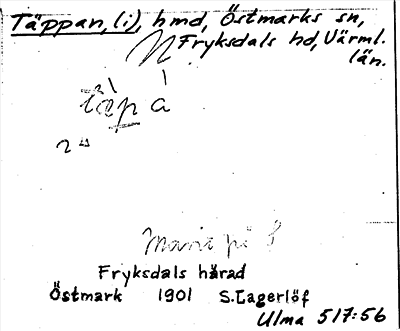 Täppan, (i), hmd, Östmarks sn,
Fryksdals hd, Värml.
län.
täpa
Marie på
Fryksdals härad
Östmark 1901 S. Lagerlöf
Ulma 517:56